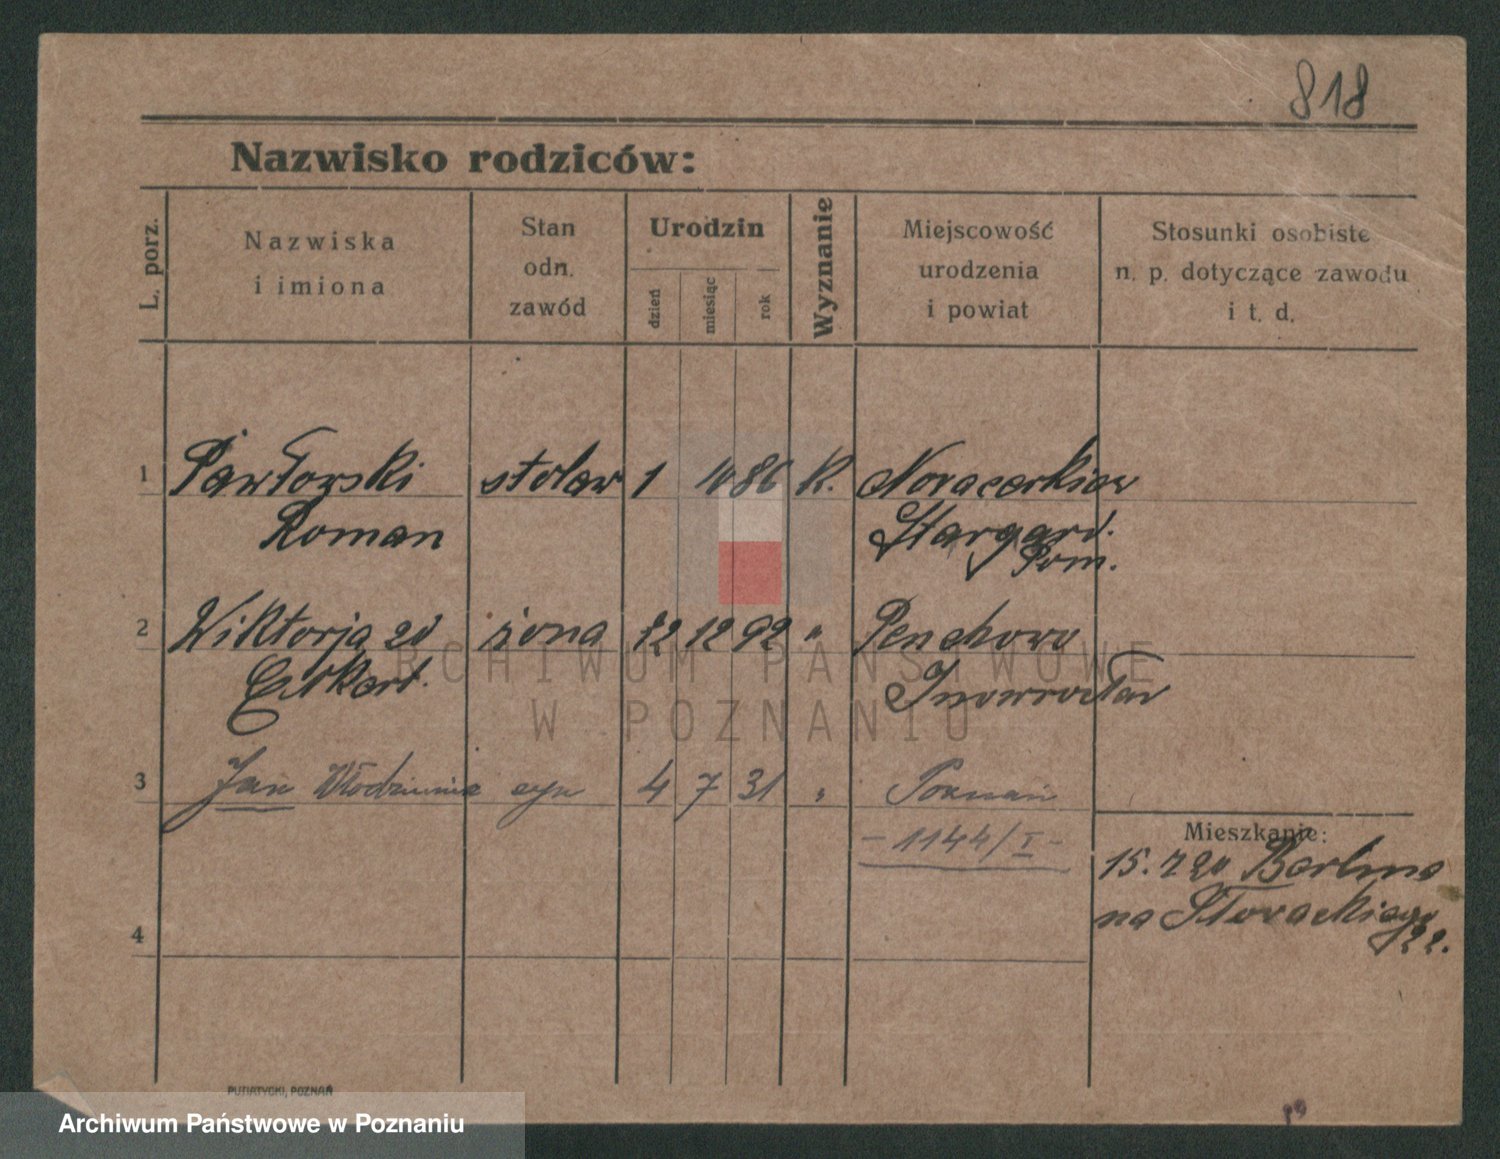 818
Nazwisko rodziców:
L. porz.
Nazwiska
i imiona
Stan
odn.
zawód
Urodzin
dzień
miesiąc
rok
Wyznanie
Miejscowość
urodzenia
i powiat
Stosunki osobiste
n. p. dotyczące zawodu
i t. d.
1 Pawłowski stolarz 1 10 86 K.
Roman Stargard.
Pom.
2 Wiktorja żona 12 12 92 "
Inowrocław
ARCHIWUM PAŃSTWOWE
W POZNANIU
3 Jan syn 4 7 31 " Poznań
- 1144/I -
Mieszkanie:
15. 7 20 Berlina
na Słowackiego
22.
4
PUTIATYCKI, POZNAŃ
Archiwum Państwowe w Poznaniu